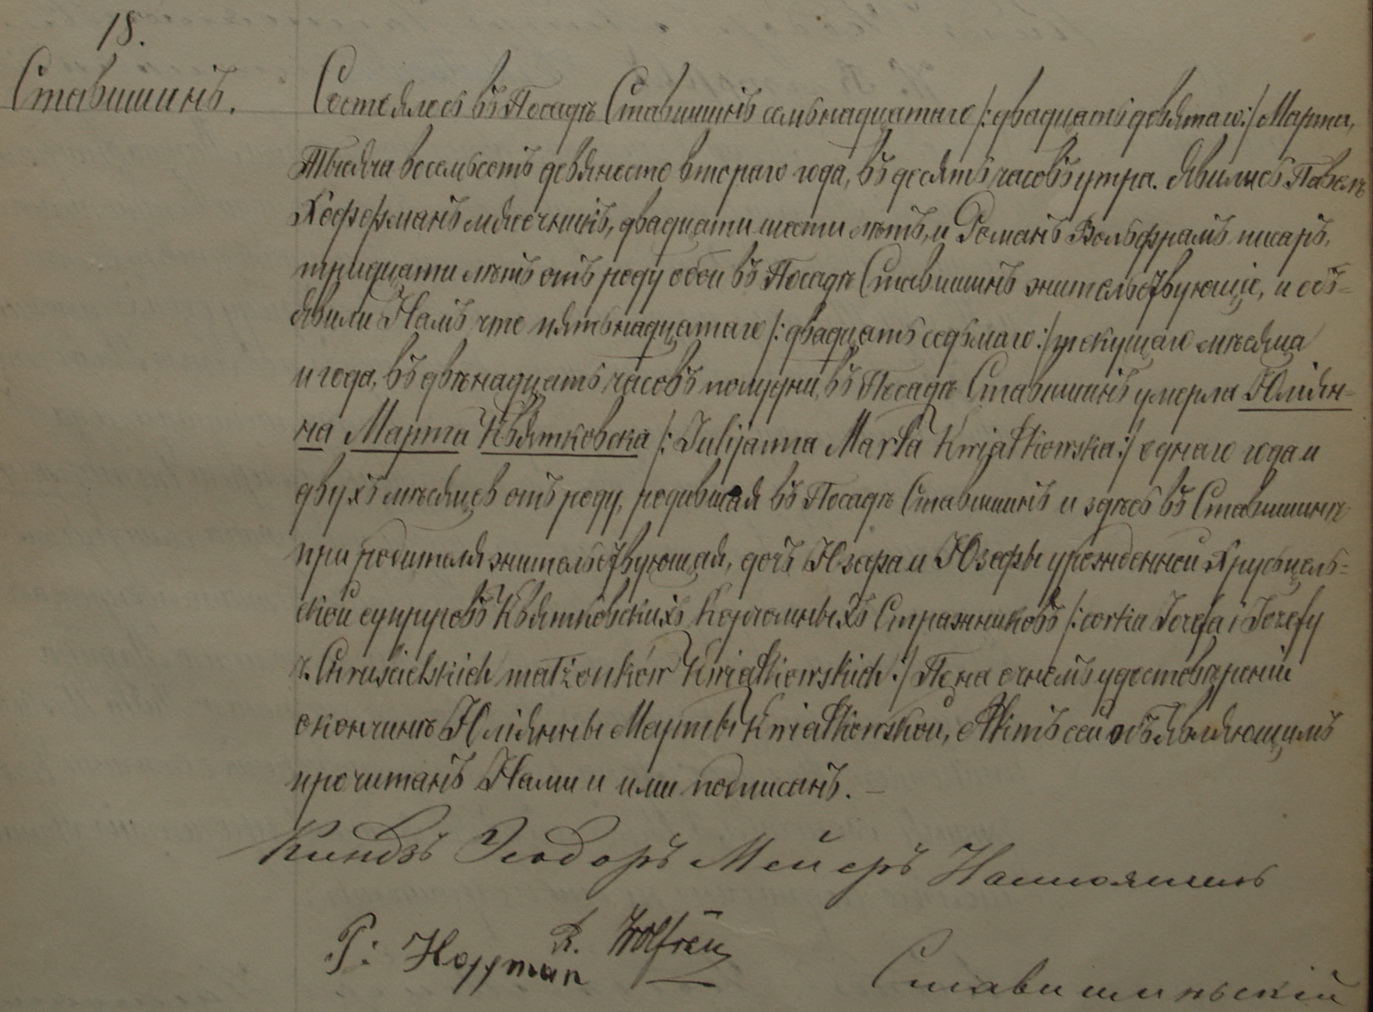 18.
Ставишинъ.
Состоялось въ Посадѣ Ставишинъ семьнадцатаго /:двадцать девятаго:/ Марта,
Тысяча восемьсотъ девяносто втораго года, въ десять часовъ утра. Явились Павелъ
Хофферманъ мясочникъ, двадцати шести лѣтъ, и Романъ Вольфрамъ писарь,
тридцати лѣтъ отъ роду оба въ Посадѣ Ставишинъ жительствующіе, и объ-
явили Намъ что пятьнадцатаго /:двадцать седьмаго:/ текущаго мѣсяца
и года, въ двѣнадцать часовъ полудни, въ Посадѣ Ставишинъ умерла Юліян-
на Марта Квятковска /:Julijanna Marta Kwiatkowska:/ однаго года и
двухъ мѣсяцев отъ роду, родившая въ Посадѣ Ставишинъ и здѣсь въ Ставишинѣ
при родителя жительствующая, дочь Юзефа и Юзефы урожденной Хрусьцель-
ской супруговъ Квятковскихъ Корчомныхъ Стражниковъ /:corka Jozefa i Jozefy
z Chruscielskich małżonków Kwiatkowskich:/ По на очномъ удостовѣреніи
окончинѣ Юліянны Марты Kwiatkowskой, Актъ сей объявляющимъ
прочитанъ Нами и ими подписанъ. —
Ксендзъ Теодоръ Мейеръ Настоятель
P: Hoffman R. Wolfram
Ставишиньскій